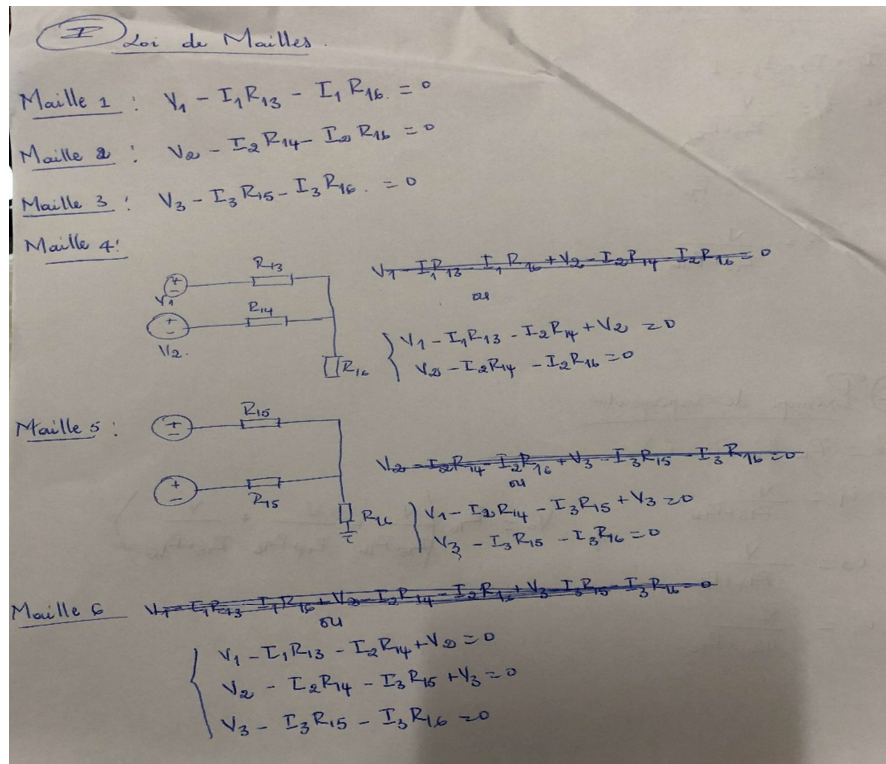 I Loi de Mailles.
Maille 1 : V₁ - I₁R₁₃ - I₁R₁₆. = 0
Maille 2 : V₂ - I₂R₁₄ - I₂R₁₆ = 0
Maille 3 : V₃ - I₃R₁₅ - I₃R₁₆. = 0
Maille 4 :
R₁₃
V₁ - I₁R₁₃ - I₁R₁₆ + V₂ - I₂R₁₄ - I₂R₁₆ = 0
V₁
ou
R₁₄
V₂.
V₁ - I₁R₁₃ - I₂R₁₄ + V₂ = 0
R₁₆
V₂ - I₂R₁₄ - I₂R₁₆ = 0
Maille 5 :
R₁₅
V₂ - I₂R₁₄ - I₂R₁₆ + V₃ - I₃R₁₅ - I₃R₁₆ = 0
ou
R₁₅
R₁₆
V₁ - I₂R₁₄ - I₃R₁₅ + V₃ = 0
V₃ - I₃R₁₅ - I₃R₁₆ = 0
Maille 6 V₁ - I₁R₁₃ - I₁R₁₆ + V₂ - I₂R₁₄ - I₂R₁₆ + V₃ - I₃R₁₅ - I₃R₁₆ = 0
ou
V₁ - I₁R₁₃ - I₂R₁₄ + V₂ = 0
V₂ - I₂R₁₄ - I₃R₁₅ + V₃ = 0
V₃ - I₃R₁₅ - I₃R₁₆ = 0